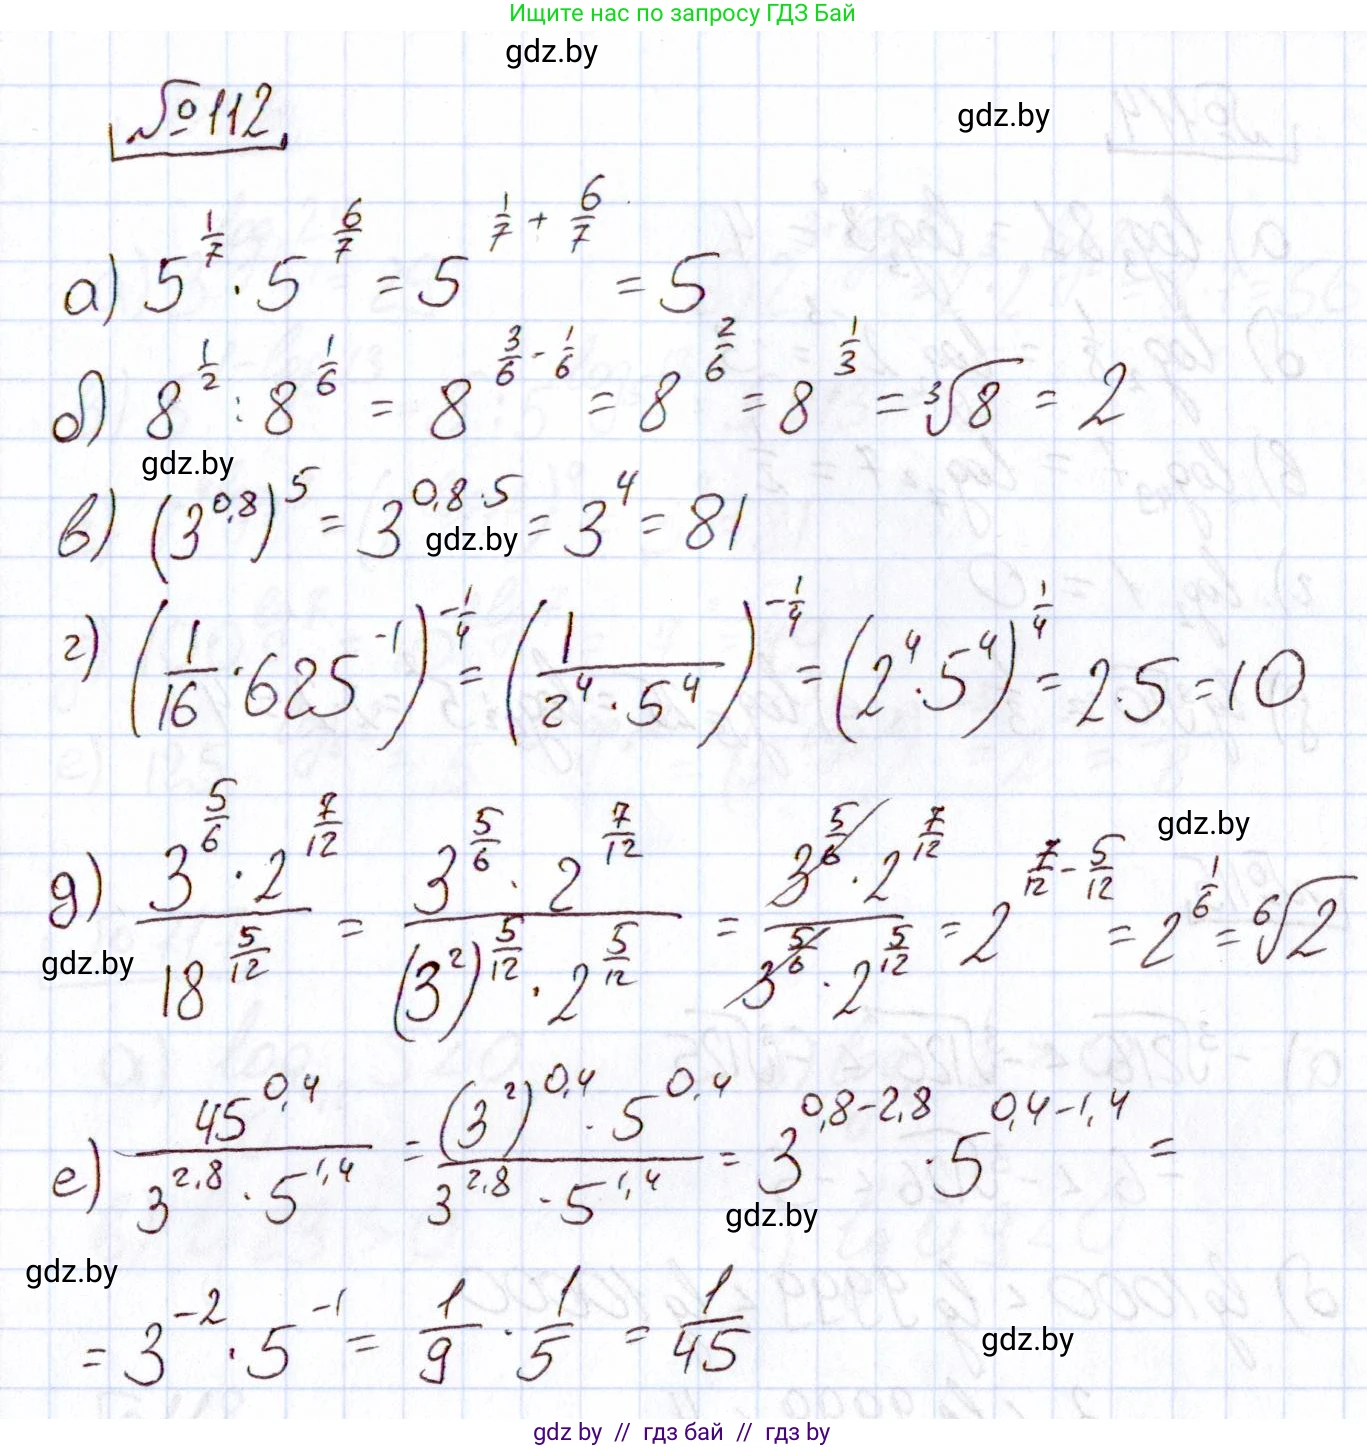 Ищите нас по запросу ГДЗ Бай
gdz.by
gdz.by
№112
а) 5^{1/7} · 5^{6/7} = 5^{1/7 + 6/7} = 5
б) 8^{1/2} : 8^{1/6} = 8^{3/6 - 1/6} = 8^{2/6} = 8^{1/3} = ∛8 = 2
gdz.by
в) (3^{0,8})^5 = 3^{0,8·5} = 3^4 = 81
gdz.by
г) (1/16 · 625^{-1})^{-1/4} = (1/(2^4 · 5^4))^{-1/4} = (2^4 · 5^4)^{1/4} = 2·5 = 10
gdz.by
д) (3^{5/6} · 2^{7/12})/(18^{5/12}) = (3^{5/6} · 2^{7/12})/((3^2)^{5/12} · 2^{5/12}) = (3^{5/6} · 2^{7/12})/(3^{5/6} · 2^{5/12}) = 2^{7/12 - 5/12} = 2^{1/6} = ⁶√2
gdz.by
е) 45^{0,4}/(3^{2,8} · 5^{1,4}) = ((3^2)^{0,4} · 5^{0,4})/(3^{2,8} · 5^{1,4}) = 3^{0,8-2,8} · 5^{0,4-1,4} =
gdz.by
gdz.by
= 3^{-2} · 5^{-1} = 1/9 · 1/5 = 1/45
gdz.by
gdz by // гдз бай // гдз by